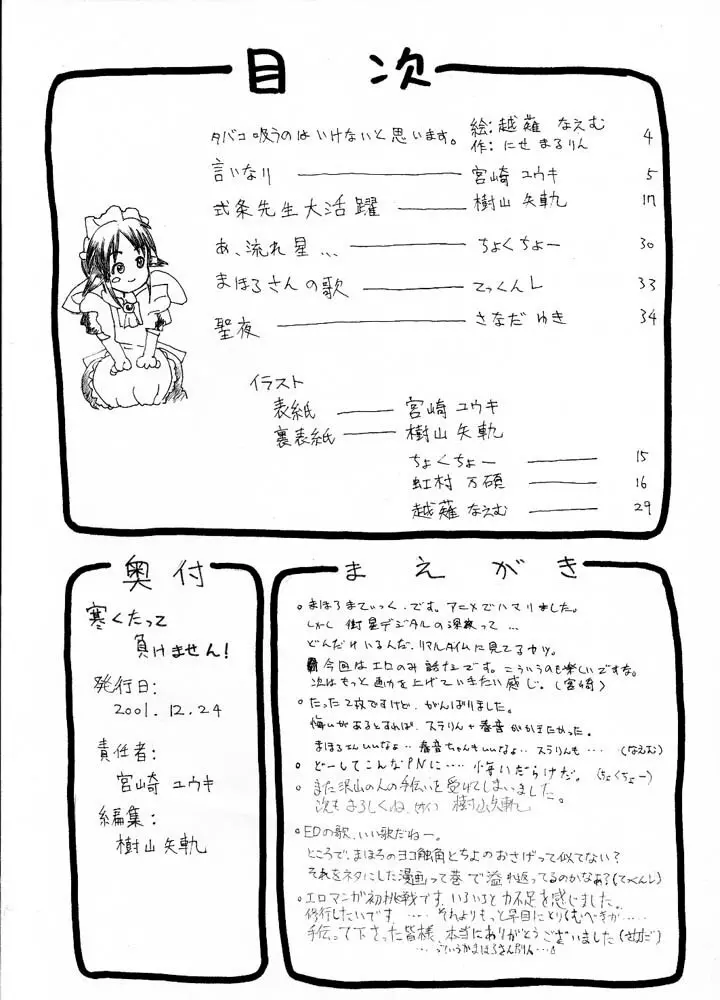 目次
タバコ吸うのはいけないと思います。 絵：越薙 なえむ 4
作：にせ まるりん
言いなり 宮崎 ユウキ 5
式条先生大活躍 樹山 矢軌 17
あ、流れ星… ちょくちょー 30
まほろさんの歌 てっくんL 33
聖夜 さなだ ゆき 34
イラスト
表紙 宮崎 ユウキ
裏表紙 樹山 矢軌
ちょくちょー 15
虹村 万碩 16
越薙 なえむ 29
奥付
寒くたって
負けません！
発行日：
2001.12.24
責任者：
宮崎 ユウキ
編集：
樹山 矢軌
まえがき
。まほろまてぃっく、です。アニメでハマりました。
しかし 衛星デジタルの深夜って…
どんだけいるんだ、リアルタイムに見てるヤツ。
今回はエロのみ話 です。こういうのも楽しいですな。
次はもっと画力を上げていきたい感じ。(宮崎)
。たった2枚ですけど、がんばりました。
悔いがあるとすれば、スラりん＋春音がかきたかった。
まほろさんいいなぁ‥ 春音ちゃんもいいなぁ‥ スラりんも…‥ (なえむ)
。どーしてこんなPNに…‥ 悔いだらけだ。(ちょくちょー)
。また沢山の人の手伝いを受けてしまいました。
次もよろしくね、 樹山矢軌
。EDの歌、いい歌だねー。
ところで、まほろのヨコ触角とちよのおさげって似てない？
それをネタにした漫画って巷で溢れ返ってるのかなぁ？(てっくんL)
。エロマンガ初挑戦です。いろいろと力不足を感じました。
修行したいです …‥ それよりもっと早目にとりくむべきが…‥
手伝って下さった皆様、本当にありがとうございました(さなだ)